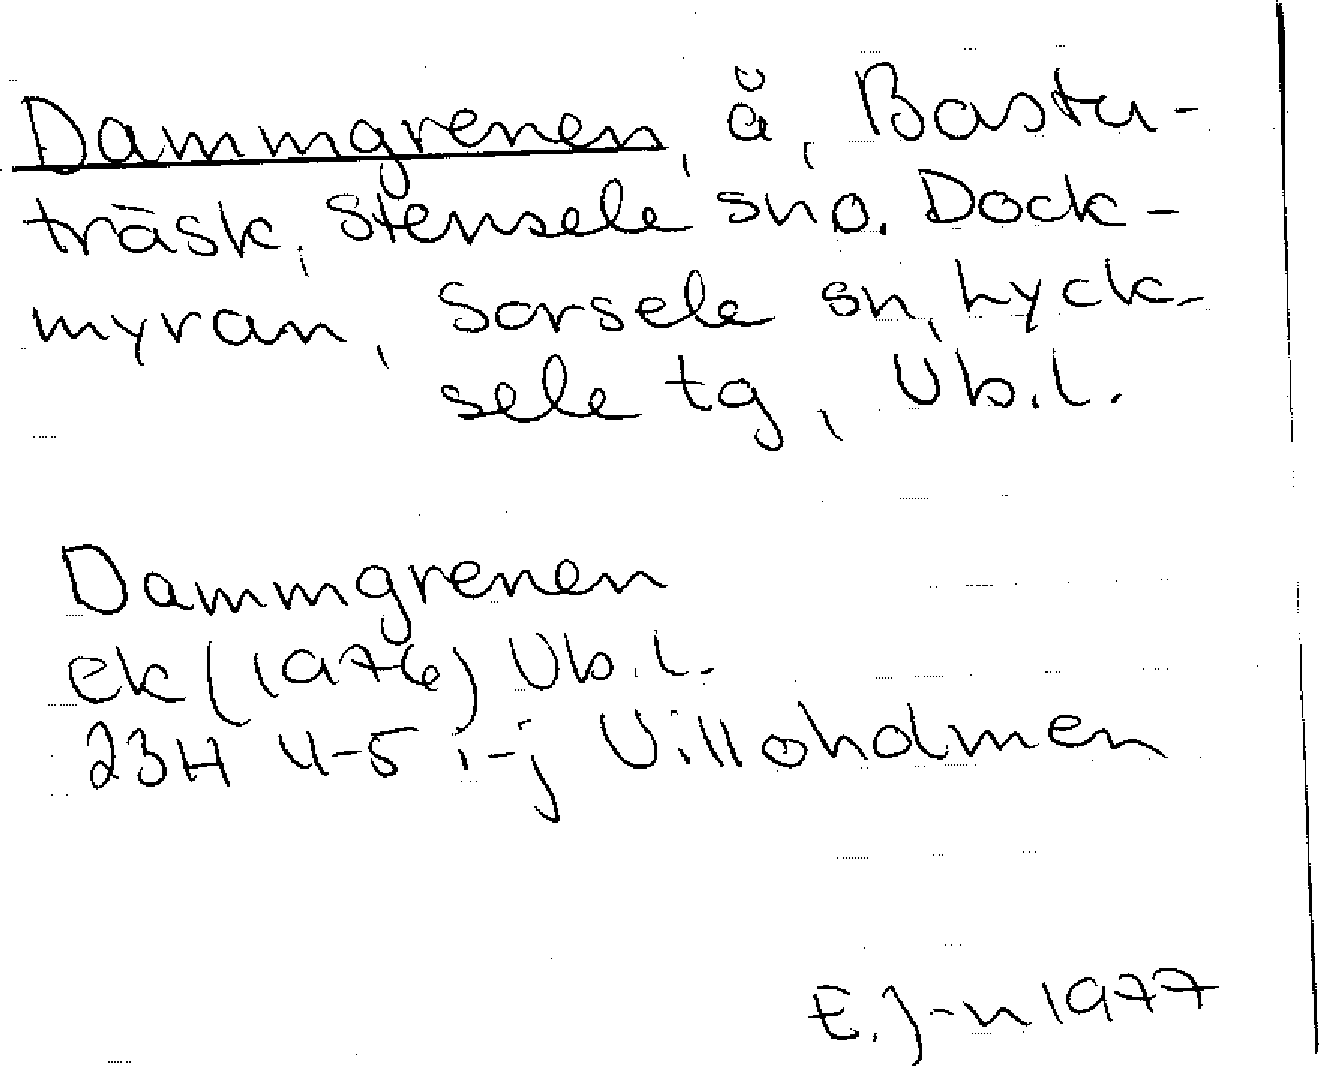 Dammgrenen, å, Bastu-
träsk, Stensele sn o. Dock-
myran, Sorsele sn, Lyck-
sele tg, Vb.l.
Dammgrenen
ek (1976) Vb.l.
23H 4-5 i-j Villoholmen
E. J-n 1977